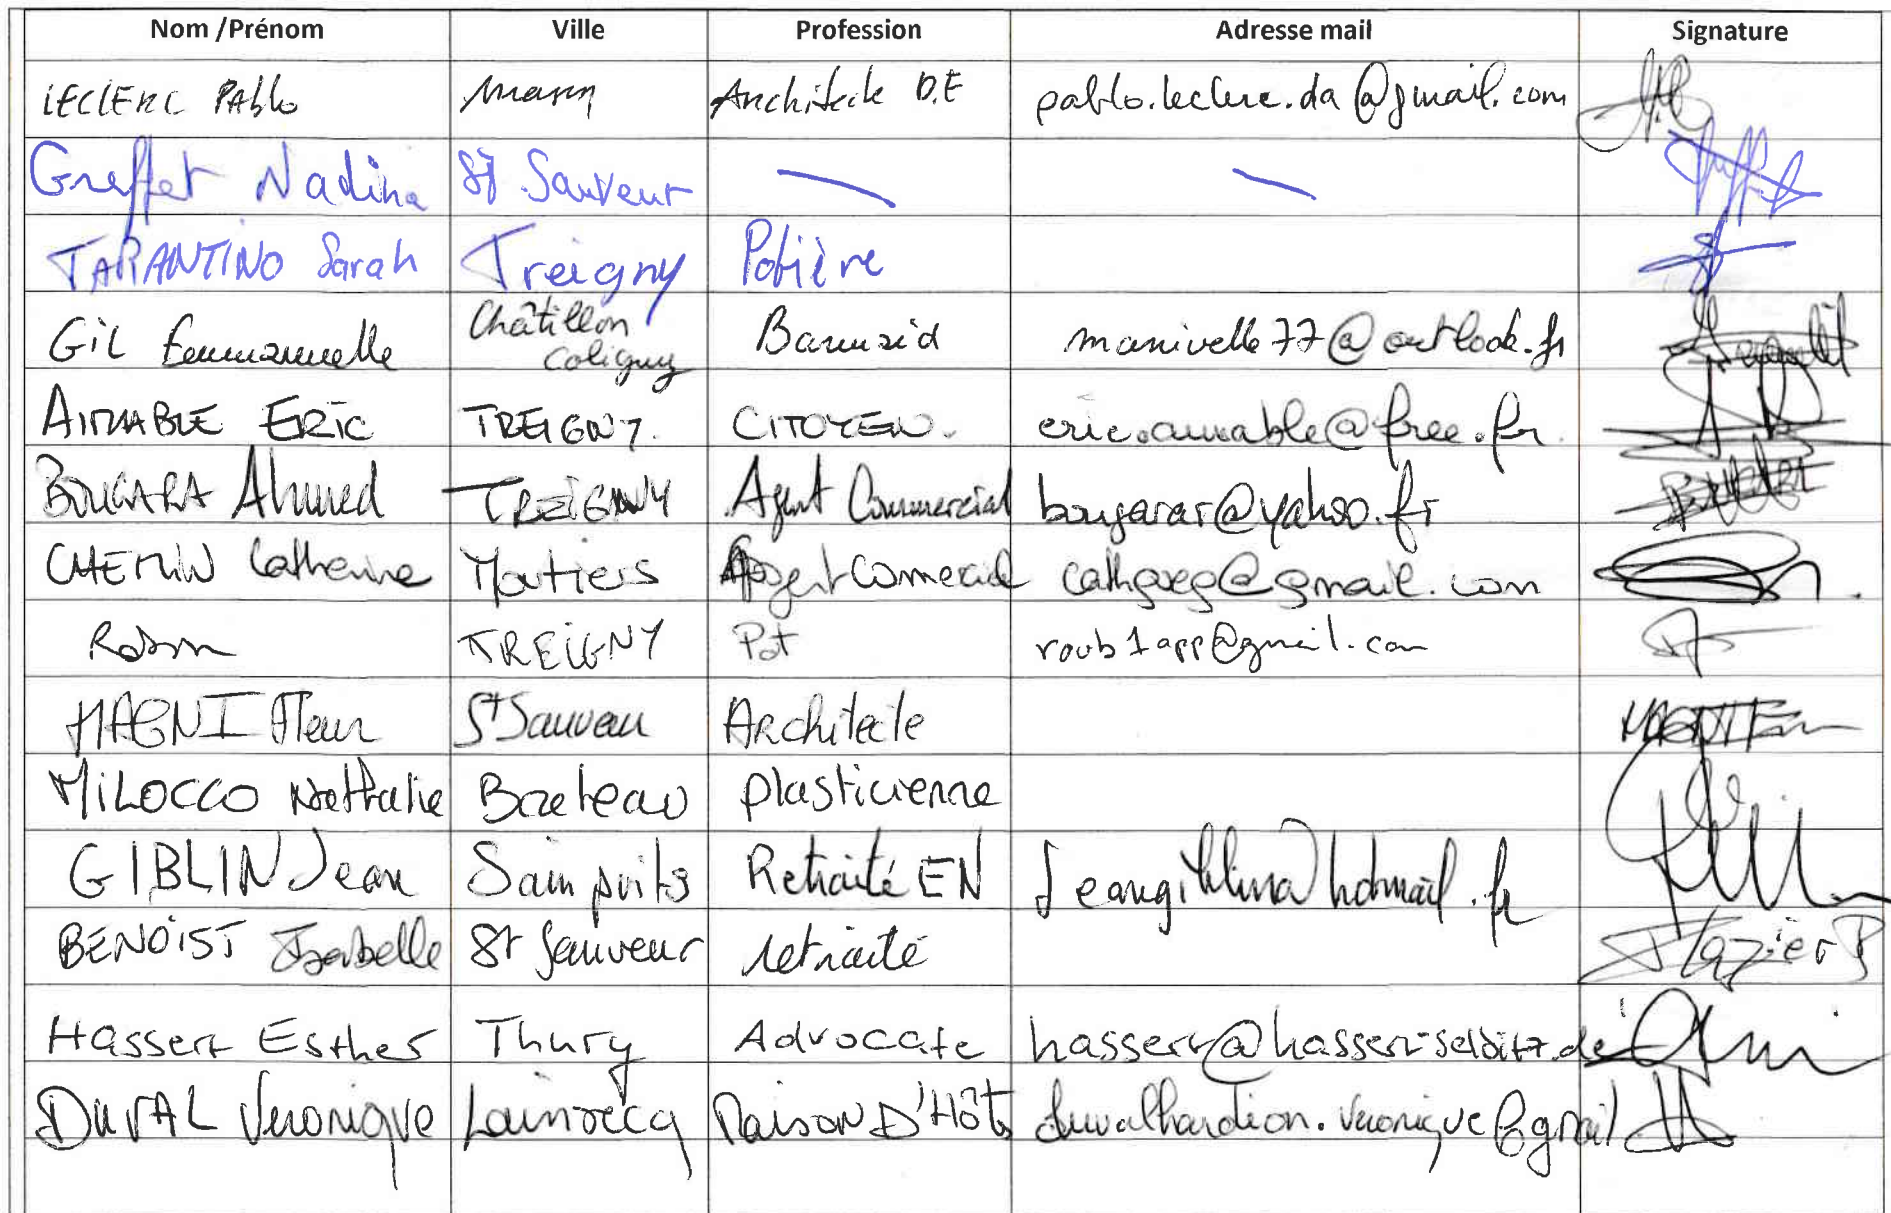 Nom /Prénom Ville Profession Adresse mail Signature
LECLERC Pablo Architecte D.E pablo.leclerc.da@gmail.com
Greffet Nadine St Sauveur
TARANTINO Sarah Treigny Potière
Gil Emmanuelle Châtillon Coligny manivelle77@outlook.fr
AIMABLE ERIC TREIGNY. CITOYEN. eric.aimable@free.fr.
BOUGARA Ahmed TREIGNY Agent Commercial bougarar@yahoo.fr
CHEMIN Catherine Moutiers Agent Comercial
Robin TREIGNY Pot roub1app@gmail.com
MAGNI Fleur St Sauveur Architecte
MILOCCO Nathalie plasticienne
GIBLIN Jean Sainpuits Retraité EN jeangiblin@hotmail.fr
BENOIST Isabelle St Sauveur retraité
Hassert Esther Thury Advocate
DUVAL Veronique Lainsecq Maison D'Hôts duvalhardion.veronique@gmail